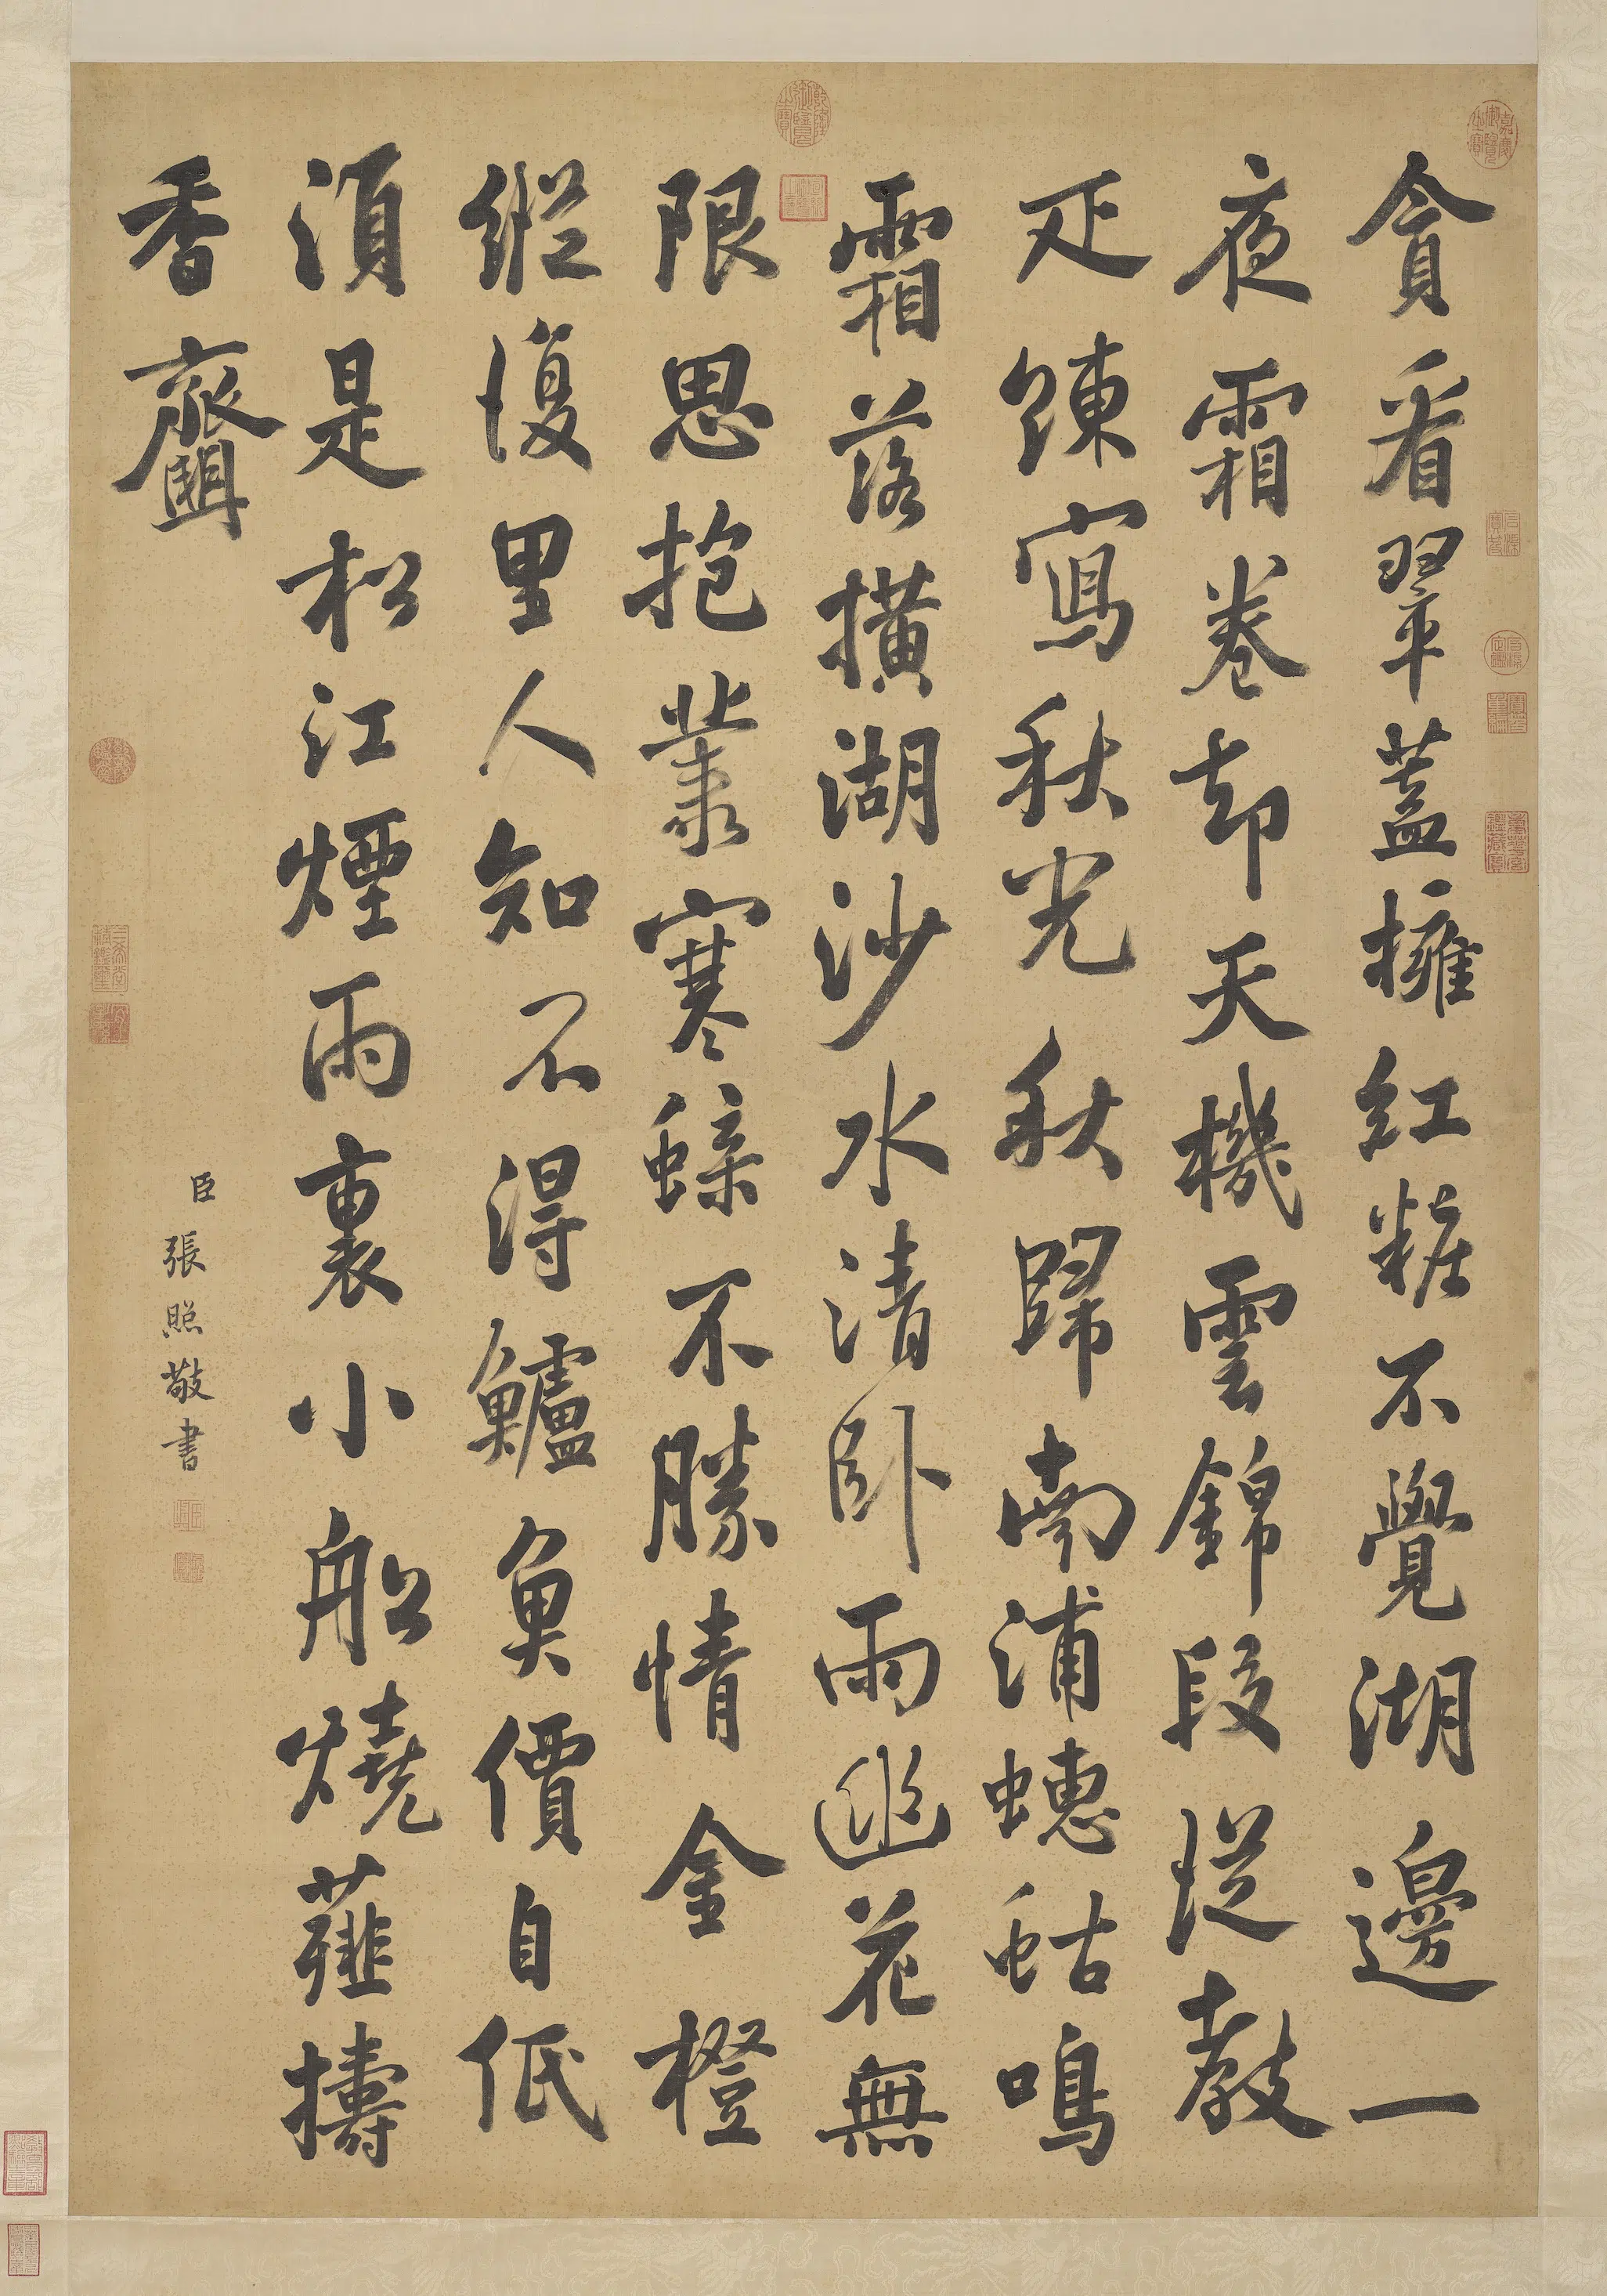 嘉慶御覽之寶
貪看翠蓋擁紅粧不覺湖邊一
夜霜卷却天機雲錦段從教
疋練寫秋光秋歸南浦蟪蛄鳴
乾隆御覽之寶
霜落橫湖沙水清卧雨幽花無
限思抱叢寒蝶不勝情金橙
縱復里人知不得鱸魚價自低
須是松江煙雨裏小船燒薤擣
香齏
臣張照敬書